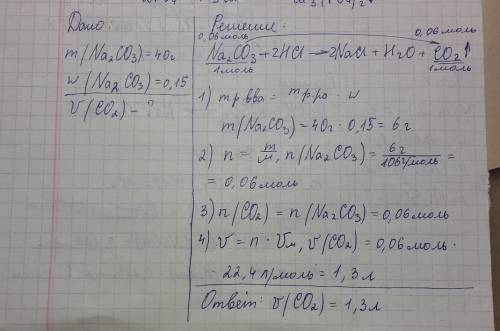 Дано:
m(Na₂CO₃)=40г
w(Na₂CO₃)=0,15
V(CO₂) - ?
Решение:
0,06моль 0,06моль
Na₂CO₃+2HCl → 2NaCl + H₂O + CO₂↑
1моль 1моль
1) m р.в-ва = m р-ра · w
m(Na₂CO₃)=40г · 0,15 = 6г
2) n = m/M, n(Na₂CO₃) = 6г/106г/моль =
= 0,06моль
3) n(CO₂) = n(Na₂CO₃)=0,06моль
4) V = n · Vм, V(CO₂) = 0,06моль ·
· 22,4л/моль = 1,3л
Ответ: V(CO₂) = 1,3л